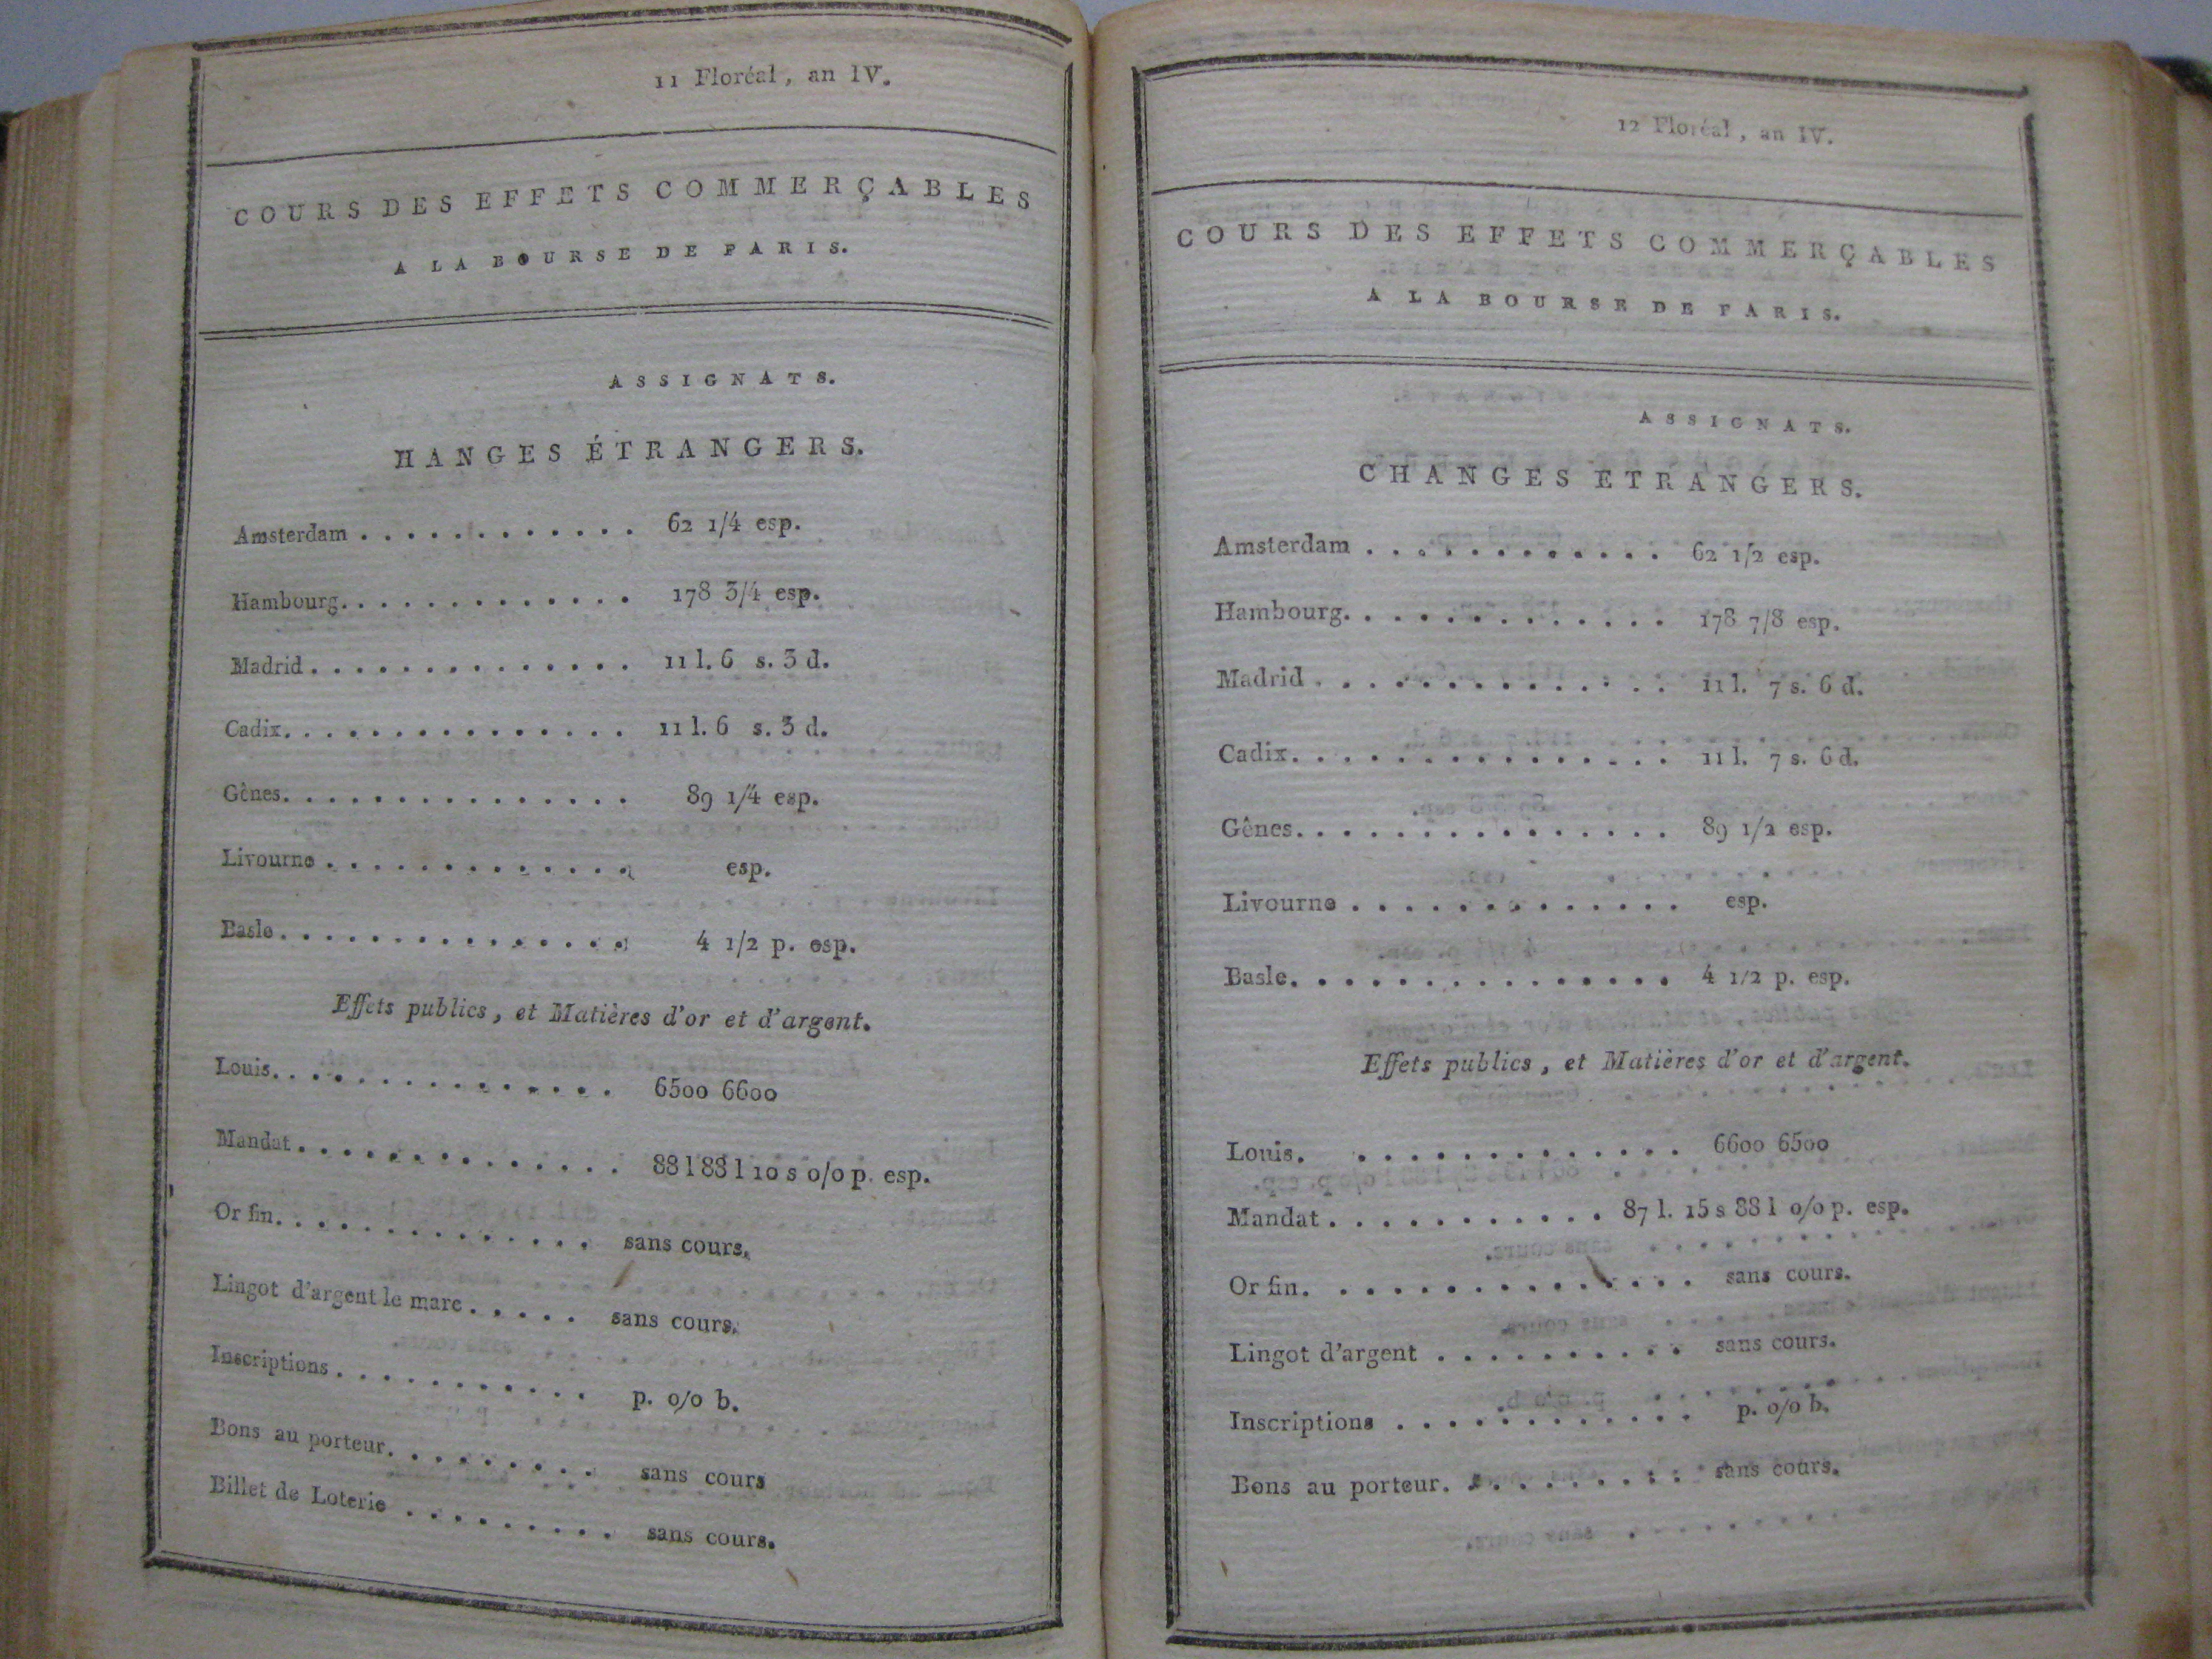 11 Floréal, an IV.
COURS DES EFFETS COMMERÇABLES
A LA BOURSE DE PARIS.
ASSIGNATS.
HANGES ÉTRANGERS.
Amsterdam . . . . . . . . . . . . 62 1/4 esp.
Hambourg. . . . . . . . . . . . . 178 3/4 esp.
Madrid . . . . . . . . . . . . . . 11 l. 6 s. 3 d.
Cadix. . . . . . . . . . . . . . . 11 l. 6 s. 3 d.
Gênes. . . . . . . . . . . . . . . 89 1/4 esp.
Livourne . . . . . . . . . . . . . esp.
Basle . . . . . . . . . . . . . . . 4 1/2 p. esp.
Effets publics, et Matières d'or et d'argent.
Louis. . . . . . . . . . . . . . . 6500 6600
Mandat . . . . . . . . . . . . . . 88 l 88 l 10 s o/o p. esp.
Or fin. . . . . . . . . . . . . . sans cours.
Lingot d'argent le marc . . . . . sans cours.
Inscriptions . . . . . . . . . . . p. o/o b.
Bons au porteur. . . . . . . . . sans cours
Billet de Loterie . . . . . . . . . sans cours.
12 Floréal, an IV.
COURS DES EFFETS COMMERÇABLES
A LA BOURSE DE PARIS.
ASSIGNATS.
CHANGES ETRANGERS.
Amsterdam . . . . . . . . . . . . 62 1/2 esp.
Hambourg. . . . . . . . . . . . . 178 7/8 esp.
Madrid . . . . . . . . . . . . . . 11 l. 7 s. 6 d.
Cadix. . . . . . . . . . . . . . . 11 l. 7 s. 6 d.
Gênes. . . . . . . . . . . . . . . 89 1/2 esp.
Livourne . . . . . . . . . . . . . esp.
Basle. . . . . . . . . . . . . . . 4 1/2 p. esp.
Effets publics, et Matières d'or et d'argent.
Louis. . . . . . . . . . . . . . 6600 6500
Mandat . . . . . . . . . . . . 87 l. 15 s 88 l o/o p. esp.
Or fin. . . . . . . . . . . . . . . sans cours.
Lingot d'argent . . . . . . . . . . sans cours.
Inscriptions . . . . . . . . . . . . p. o/o b.
Bons au porteur. . . . . . . . . sans cours.